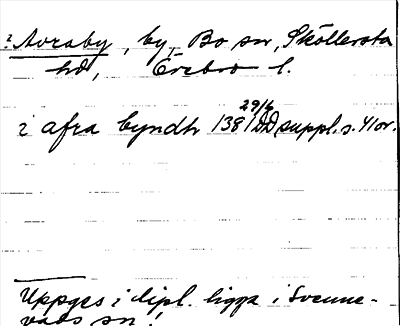 ? Avraby, by, Bo sn, Sköllersta
hd, Örebro l.
i afra byndh 1381 29/6 DD suppl. s. 41 or.
Uppges i dipl. ligga i Svenne-
vads sn!